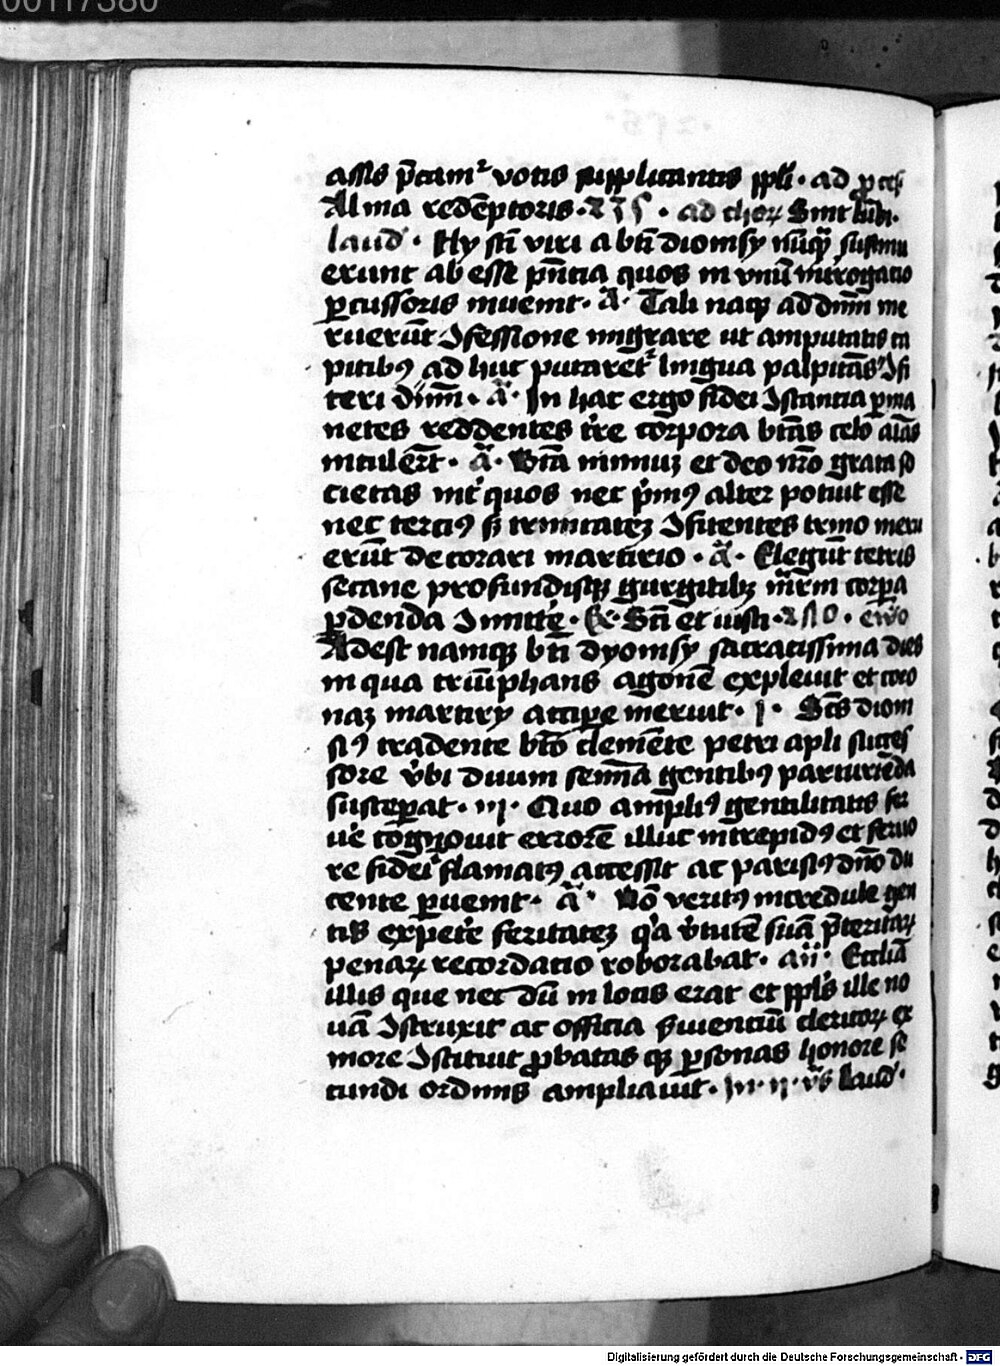 00117380
assis p̄cam² votis supplicantis ppli · ad p̱cess
Alma redēptoris · 235 · ad choꝝ Sint lūbi ·
laud' · Hy sūt viri a bti dionisy nūqꝫ sustinu
erunt abesse pn̄cia quos in vnū introgatio
ꝑcussoris inuenit · A · Tali naqꝫ ad dnm̄ me
ruerūt ꝯfessione migrare ut amputatis ca
pitibꝰ ad huc putaret² lingua palpitās ꝯfi
teri dnm̄ · A · In hac ergo fidei ꝯstantia ꝑma
netes reddentes tr̄e corpora btās celo aīas
intulert̄ · A · Btā nimiuꝫ et deo nr̄o grata so
cietas int' quos nec p̄mꝰ alter potuit esse
nec terciꝰ sꝫ trinitateꝫ ꝯfitentes trino meru
erūt decorari martirio · A · Elegūt tetris
secane profundisqꝫ gurgitibꝫ mr̄m corpa
ꝑdenda Inmitte · Sc̄i et iusti · 210 · ewo
Adest namqꝫ bti dyonisy sacratissima dies
in qua triūphans agonē expleuit et coro
naꝫ martiry accipe meruit · I · Sc̄s dioni
siꝰ tradente bto clemēte petri apli succes
sore v̄bi diuum semīa gentibꝰ parturiēda
susceꝑat · III · Quo ampliꝰ gentilitatis fer
ue cognouit errorē illuc intrepidꝰ et feruo
re fidei flamatꝰ accessit ac parisiꝰ dn̄o du
cente ꝑuenit · A · Nō veritꝰ incredule gen
tis exꝑet'e feritateꝫ q'a v̄tutē suā p̄teritaꝝ
penaꝝ recordatio roborabat · aii · Eccliā
illis que nec dū in locis erat et ppl's ille no
uā ꝯstruxit ac officia s'uientiū clericoꝝ ex
more ꝯstituit ꝓbatas qꝫ ꝑsonas honore se
cundi ordinis ampliauit · In · II · v̄s laud' ·
Digitalisierung gefördert durch die Deutsche Forschungsgemeinschaft - DFG